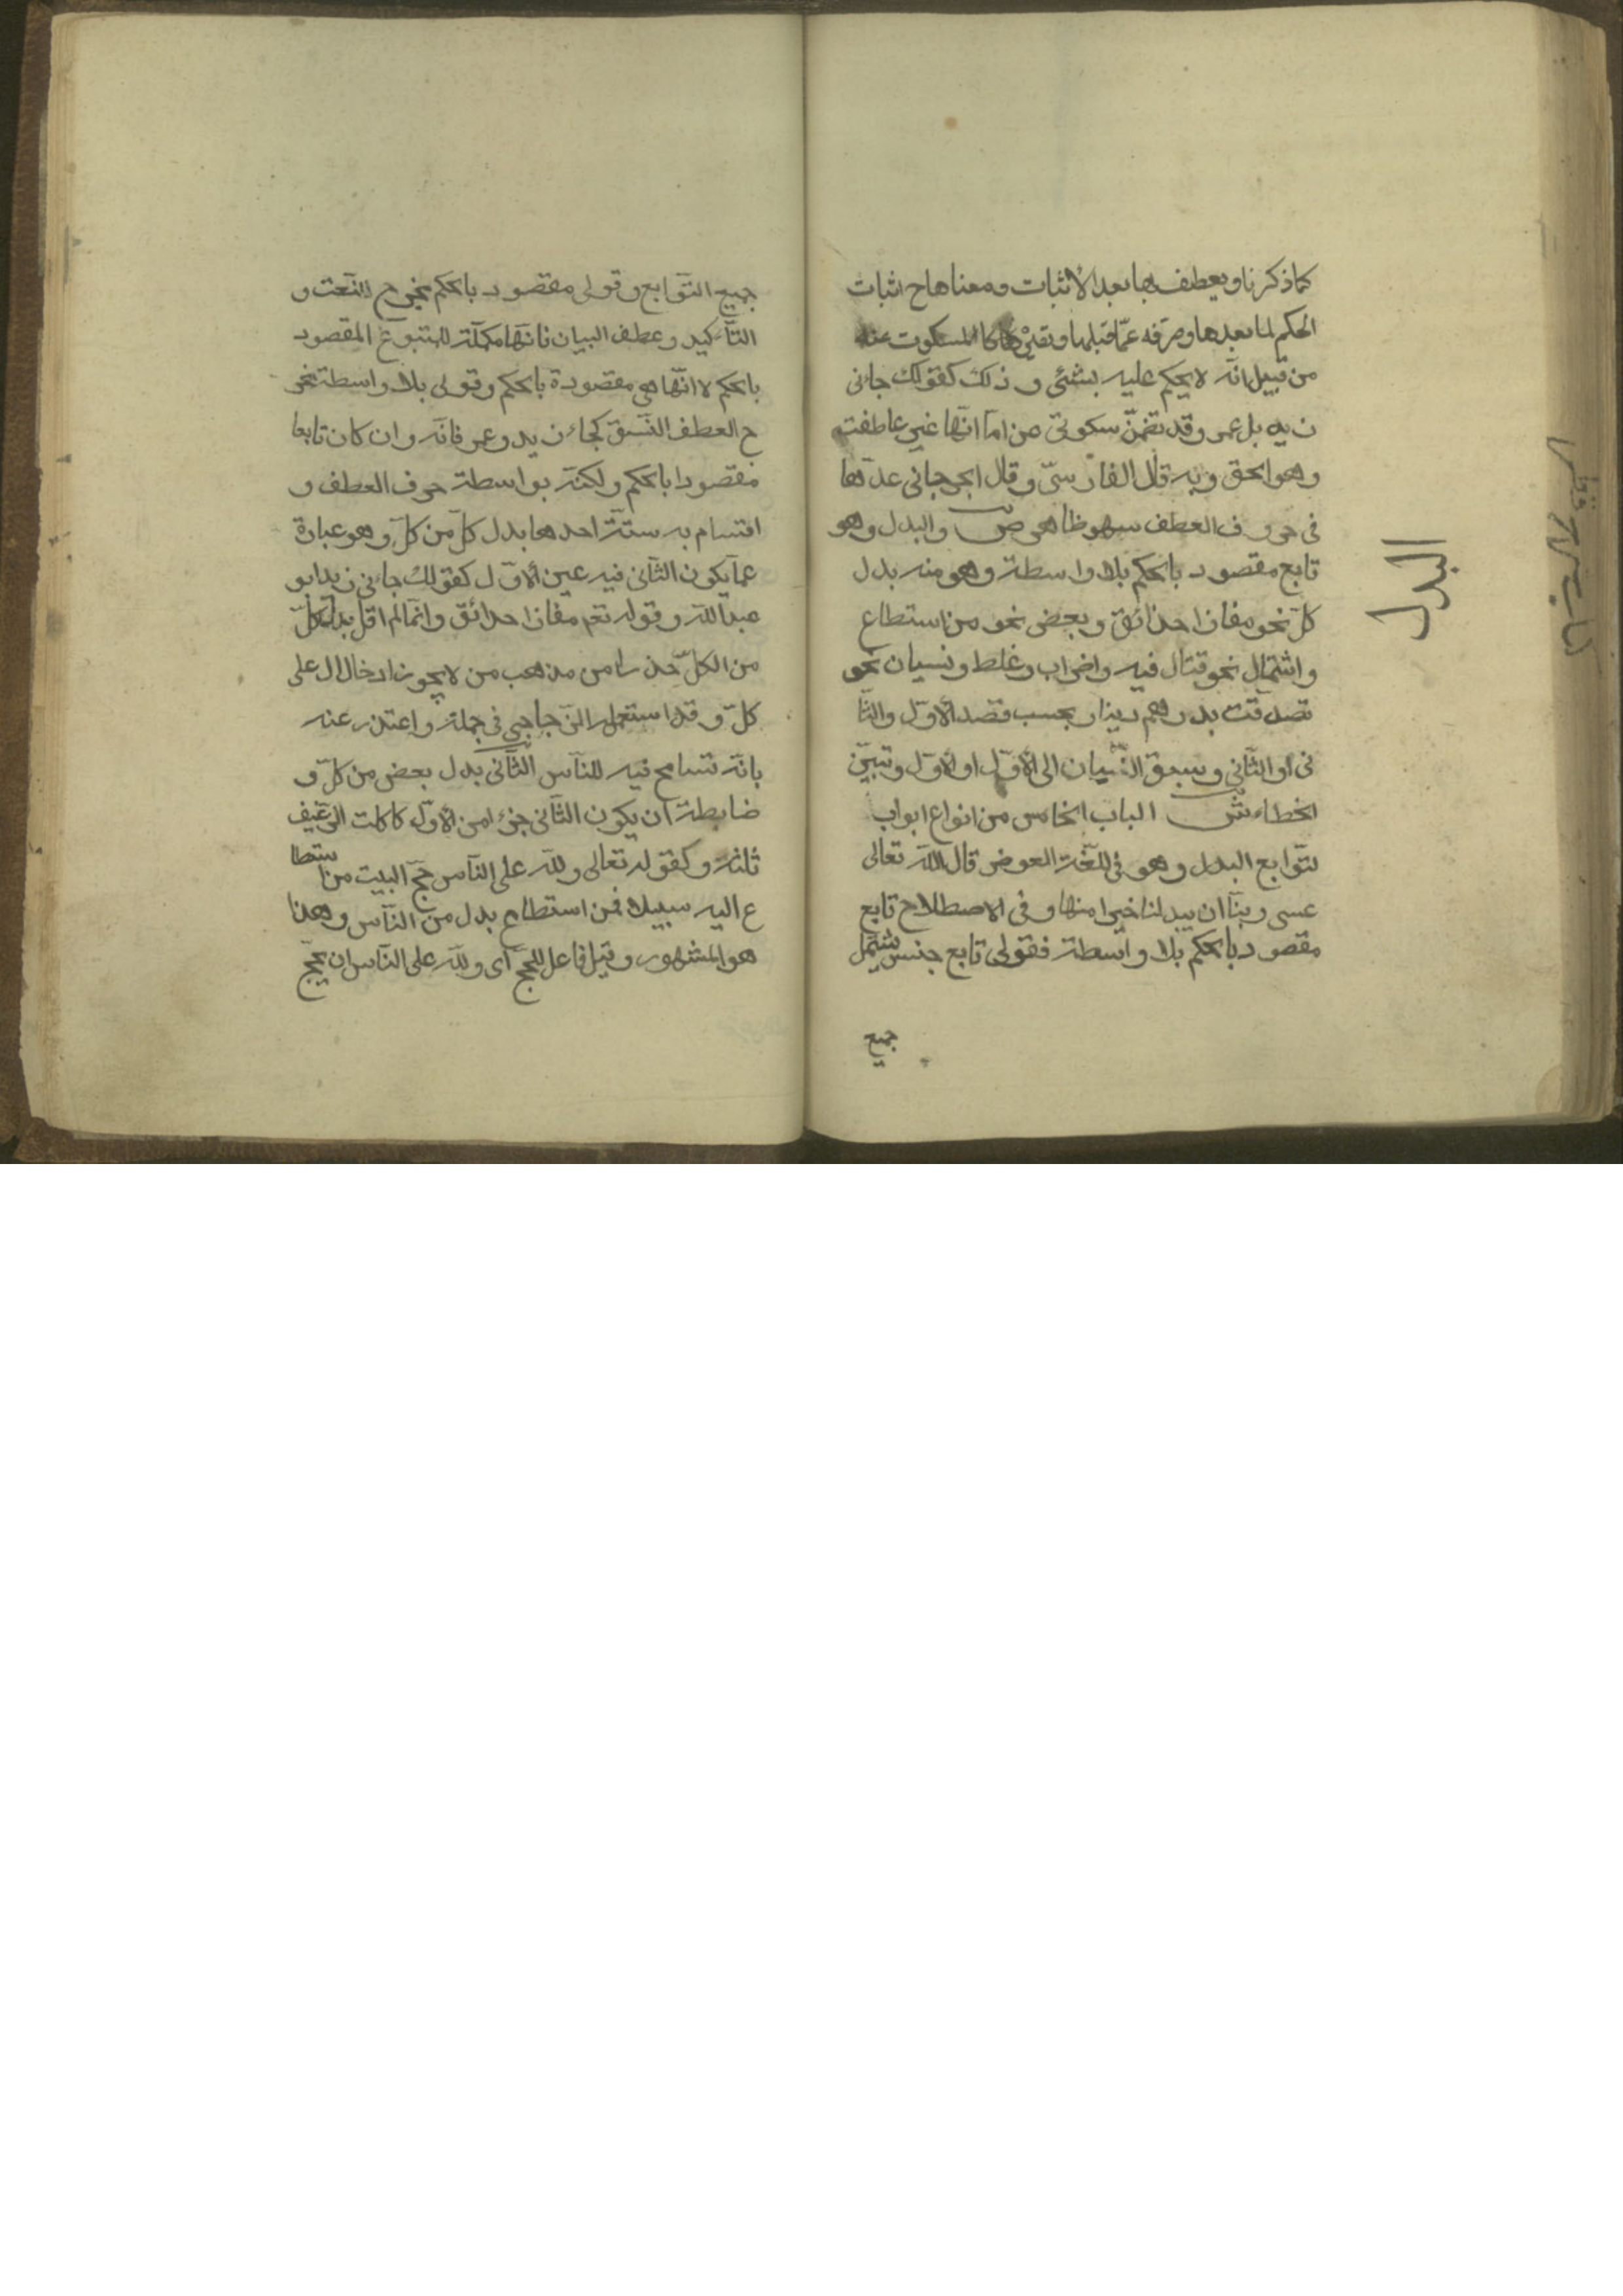 كما ذكرنا ويعطف بها بعد الاثبات ومعناها ح اثبات
الحكم لما بعدها وصرفه عمّا قبلها كالمسكوت عنه
من قبيل انّه لا يحكم عليه بشئى وذلك كقولك جائنى
زيد بل عمر وقد تضمّن سكوتى عن امّا انّها غير عاطفته
وهو الحق وبه قال الفارسىّ وقال الجرجانى عدّها
فى حروف العطف سهو ظاهر ص والبدل وهو
تابع مقصود بالحكم بلا واسطة وهو منه بدل
كلّ نحو مفازا حدائق وبعض نحو من استطاع
واشتمال نحو قتال فيه واضراب وغلط ونسيان نحو
تصدّقت بدرهم دينار بحسب قصد الاوّل والثا
نى او الثّانى وسبق النّسيان الى الأوّل او الاوّل وتبيّن
الخطاء ش الباب الخامس من انواع ابواب
لتّوابع البدل وهو فى اللّغة العوض قال اللّه تعالى
عسى ربنّا ان يبدلنا خيرا منها وفى الاصطلاح تابع
مقصود بالحكم بلا واسطة فقولى تابع جنس يشتمل
جميع
البدل
جميع التّوابع وقولى مقصود بالحكم يخرج النّعت و
التّأكيد وعطف البيان فانّها مكمّلة للمتبوع المقصود
بالحكم لا انّها هى مقصودة بالحكم وقولى بلا واسطة يخر
ج العطف النّسق كجاء زيد وعمر فانّه وان كان تابعا
مقصودا بالحكم ولكنّه بواسطة حرف العطف و
اقسامه ستّة احدها بدل كلّ من كلّ وهو عبارة
عمّا يكون الثّانى فيه عين الاوّل كقولك جائنى زيد ابو
عبد اللّه وقوله تعم مفازا حدائق وانّما لم اقل بدل الكلّ
من الكلّ حذرا من مذهب من لا يجوز ادخال ال على
كلّ وقد استعمله الزّجاجى فى جمله واعتذر عنه
بانّه تسامح فيه للنّاس الثّانى بدل بعض من كلّ و
ضابطة ان يكون الثّانى جزءا من الاوّل كاكلت الرّغيف
ثلثه وكقوله تعالى وللّه على النّاس حجّ البيت من استطا
ع اليه سبيلا فمن استطاع بدل من النّاس وهذا
هو المشهور وقيل فاعل للحجّ اى وللّه على النّاس ان يحجّ